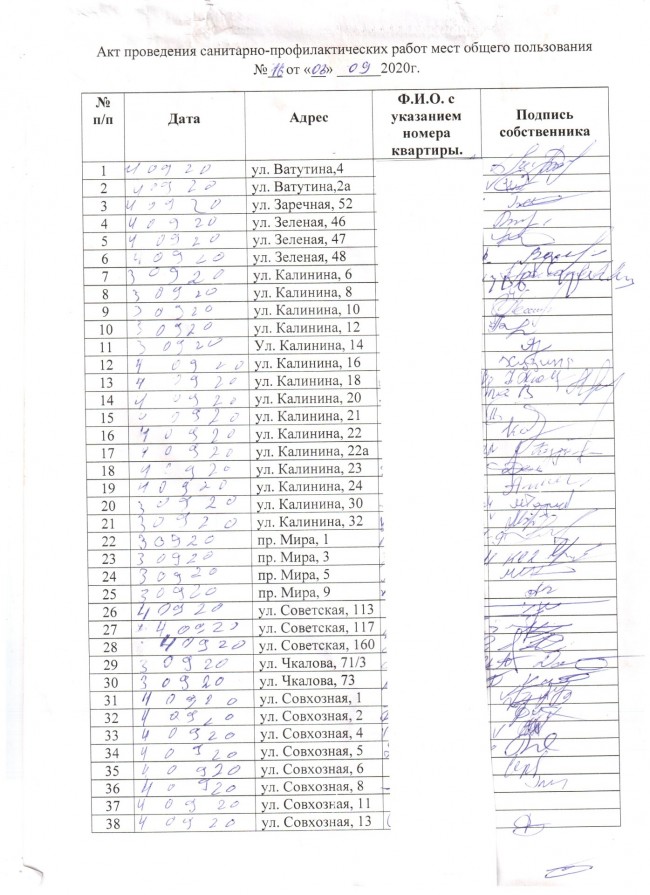 Акт проведения санитарно-профилактических работ мест общего пользования
№ 16 от «08» 09 2020г.
№ п/п Дата Адрес Ф.И.О. с указанием номера квартиры. Подпись собственника
1 4 09 20 ул. Ватутина,4
2 09 20 ул. Ватутина,2а
3 4 09 20 ул. Заречная, 52
4 4 09 20 ул. Зеленая, 46
5 4 09 20 ул. Зеленая, 47
6 4 09 20 ул. Зеленая, 48
7 3 09 20 ул. Калинина, 6
8 3 09 20 ул. Калинина, 8
9 3 09 20 ул. Калинина, 10
10 3 09 20 ул. Калинина, 12
11 3 09 20 Ул. Калинина, 14
12 4 09 20 ул. Калинина, 16
13 4 09 20 ул. Калинина, 18
14 4 09 20 ул. Калинина, 20
15 09 20 ул. Калинина, 21
16 4 09 20 ул. Калинина, 22
17 4 09 20 ул. Калинина, 22а
18 4 09 20 ул. Калинина, 23
19 4 09 20 ул. Калинина, 24
20 3 09 20 ул. Калинина, 30
21 3 09 20 ул. Калинина, 32
22 3 09 20 пр. Мира, 1
23 3 09 20 пр. Мира, 3
24 3 09 20 пр. Мира, 5
25 3 09 20 пр. Мира, 9
26 4 09 20 ул. Советская, 113
27 4 09 20 ул. Советская, 117
28 4 09 20 ул. Советская, 160
29 3 09 20 ул. Чкалова, 71/3
30 3 09 20 ул. Чкалова, 73
31 4 09 20 ул. Совхозная, 1
32 4 09 20 ул. Совхозная, 2
33 4 09 20 ул. Совхозная, 4
34 4 09 20 ул. Совхозная, 5
35 4 09 20 ул. Совхозная, 6
36 4 09 20 ул. Совхозная, 8
37 4 09 20 ул. Совхозная, 11
38 4 09 20 ул. Совхозная, 13